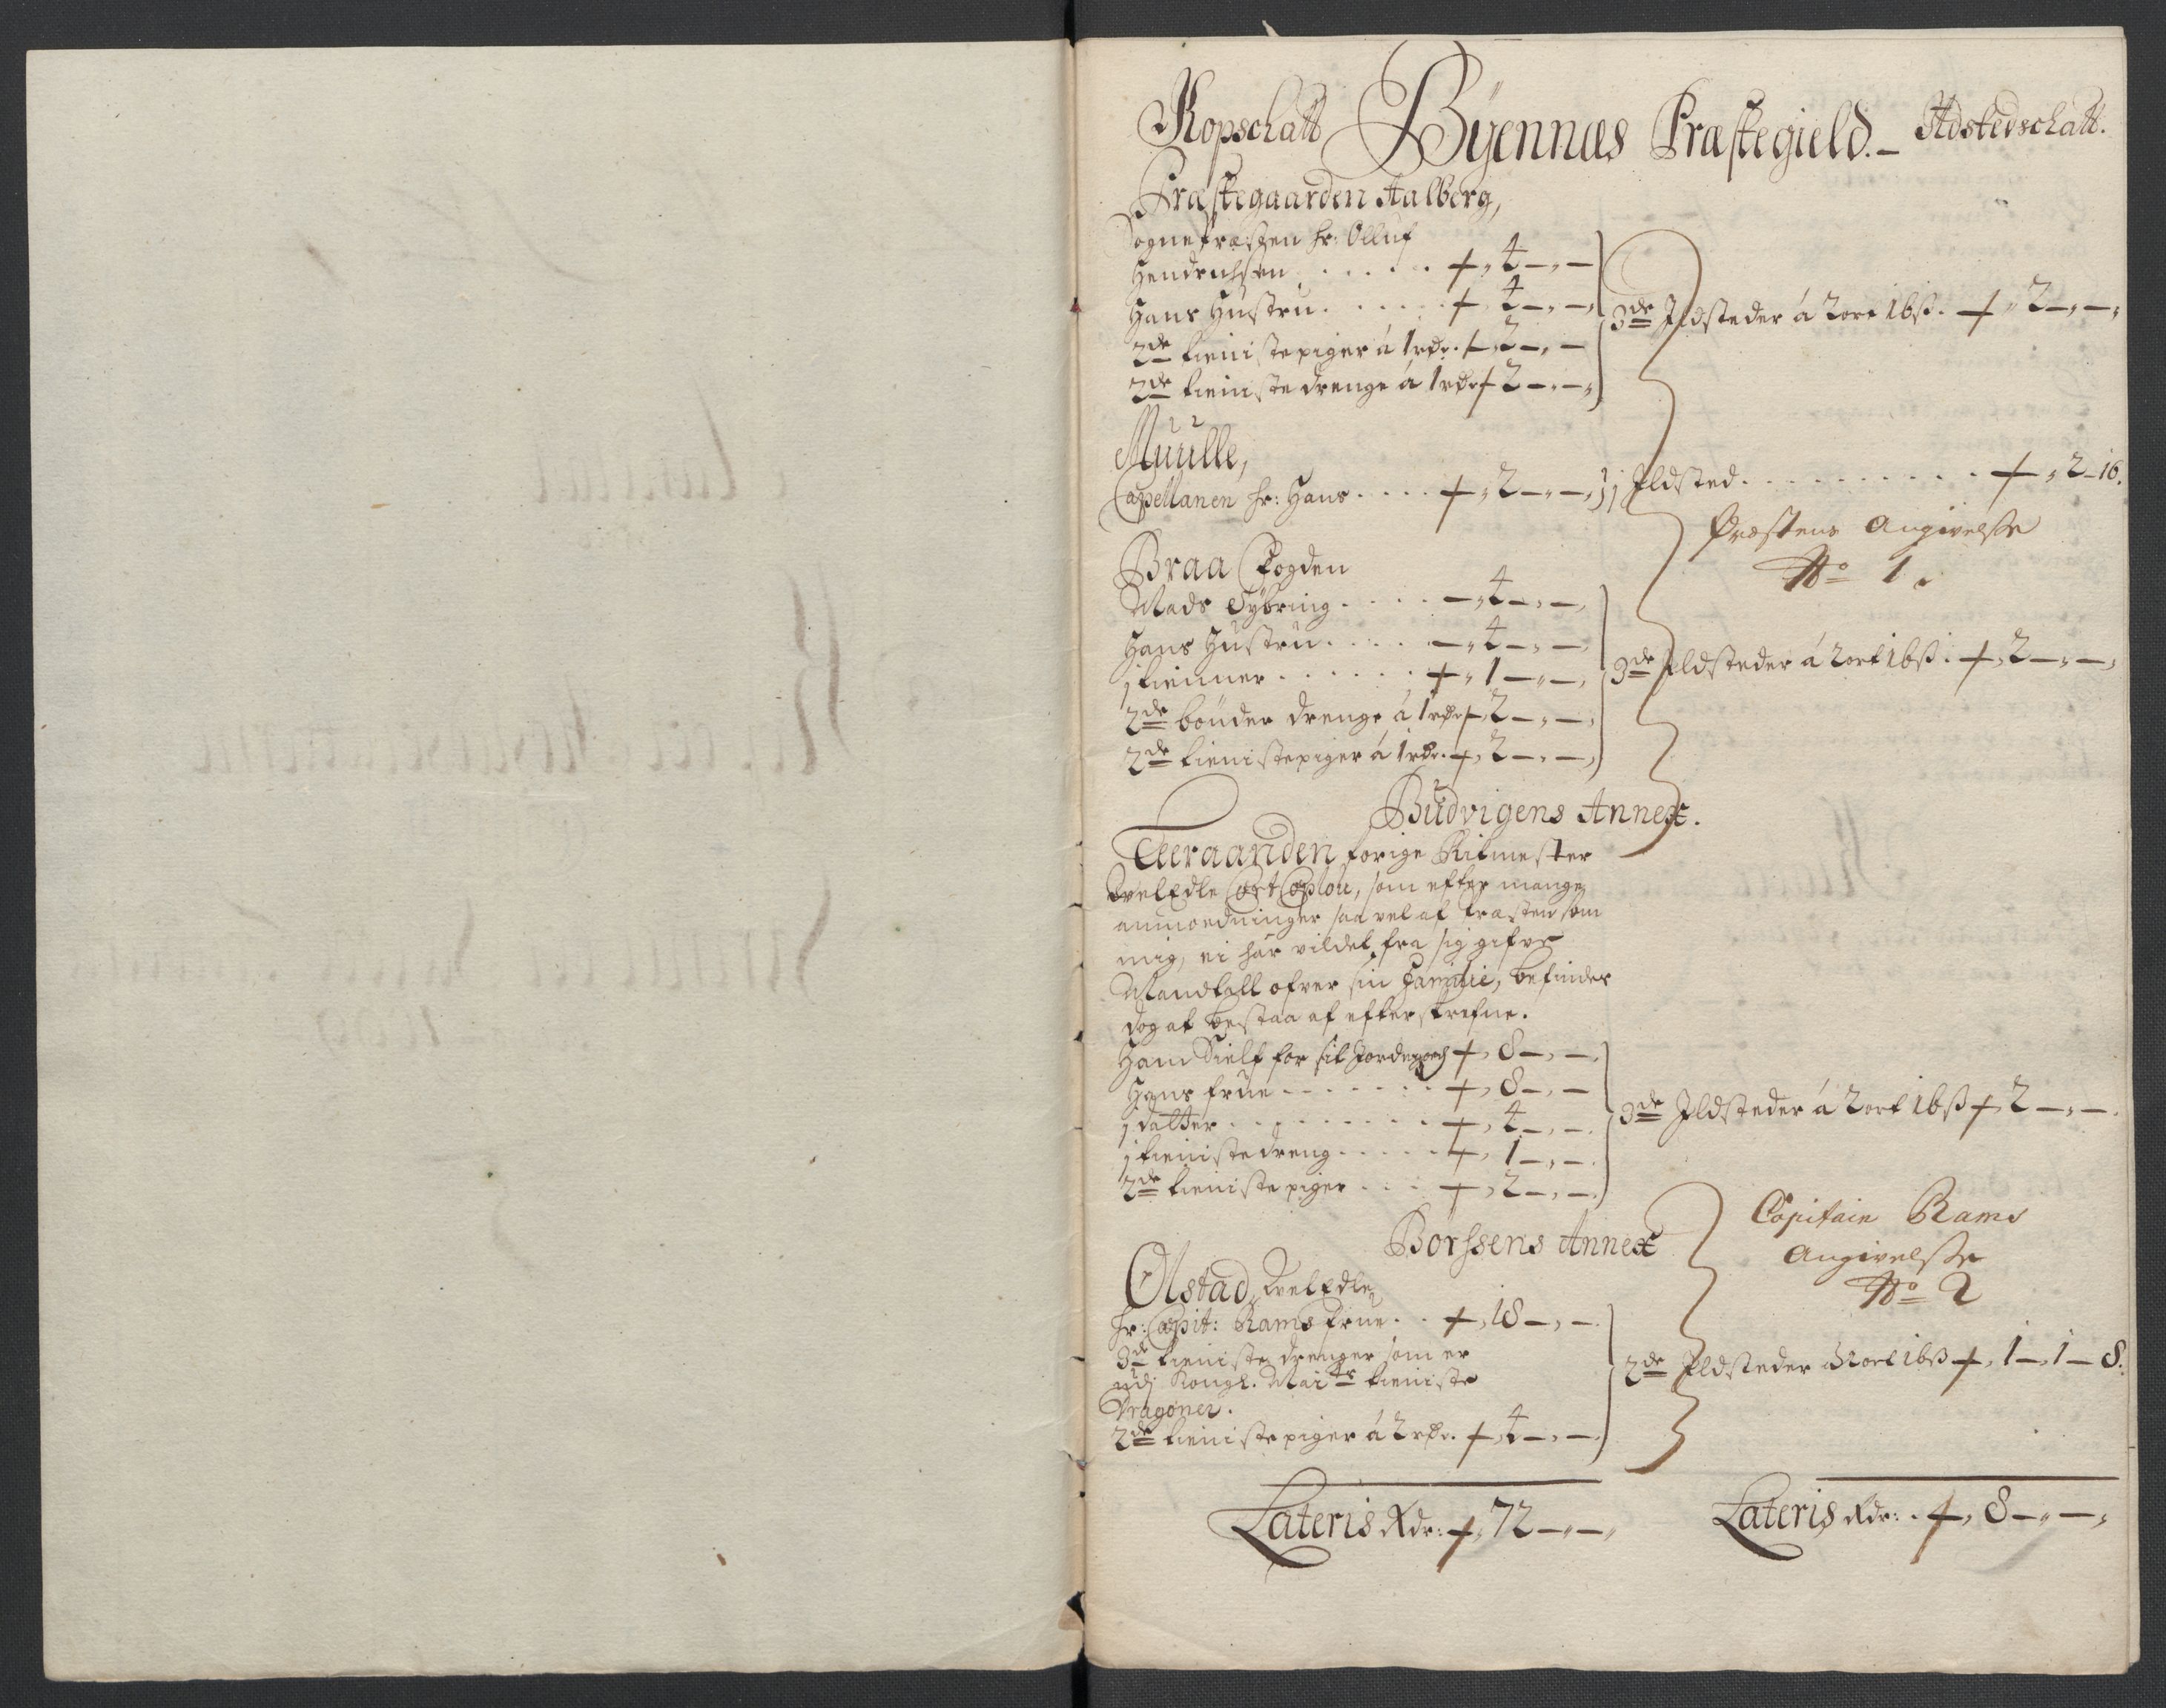 Kopschatt Byennæs Præstegield. Ildstedschatt.
Præstegaarden Aalberg,
Sognepræsten hr: Olluf
Hendrichsen . . . . . 4 — —
Hans Hustru . . . . . 4 — —
2de tieniste piger á 1 rdr. 2 — —
2de tieniste drenge á 1 rdr 2 — —
3de Ildsteder á 2 ort 16 ß. 2 — —
Muulle,
Capellanen hr: Hans . . . . 2 — —
1 Ildsted . . . . . . . . . . 2 — 16.
Præstens Angivelsse
No 1.
Braa Fogden
Mads Sybring . . . . 4 — —
Hans Hustru . . . . 4 — —
1 tienner . . . . . . 1 — —
2de bönder drenge á 1 rdr 2 — —
2de tieniste piger á 1 rdr. 2 — —
3de Ildsteder á 2 ort 16 ß. 2 — —
Budvigens Annex.
Teeraanden forige Ritmester
Velædle Cort Coplou, som efter mange
anmodninger saa vel af Præsten som
mig, ei har vildet fra sig gifve
Mandtall ofver sin Familie, befindes
dog at bestaa af efterskrefne.
Hand Sielf for sit Jordegods 8 — —
Hans frue . . . . . . . 8 — —
1 datter . . . . . . . . 4 — —
1 tieniste dreng . . . . . 1 — —
2de tieniste piger . . . 2 — —
3de Ildsteder á 2 ort 16 ß 2 — —
Börssens Annex
Capitain Rams
Angivelsse
No 2
Ölstad, Velædle
hr: Capit: Rams Frue . . 18 — —
3de tieniste drenger som er
udj Kongl. Maits tieniste
Dragoner.
2de tieniste piger á 2 rdr. 4 — —
2de Ildsteder á 2 ort 16 ß 1 — 1 — 8.
Lateris Rdr: 72 — —
Lateris Rdr: . 8 — —